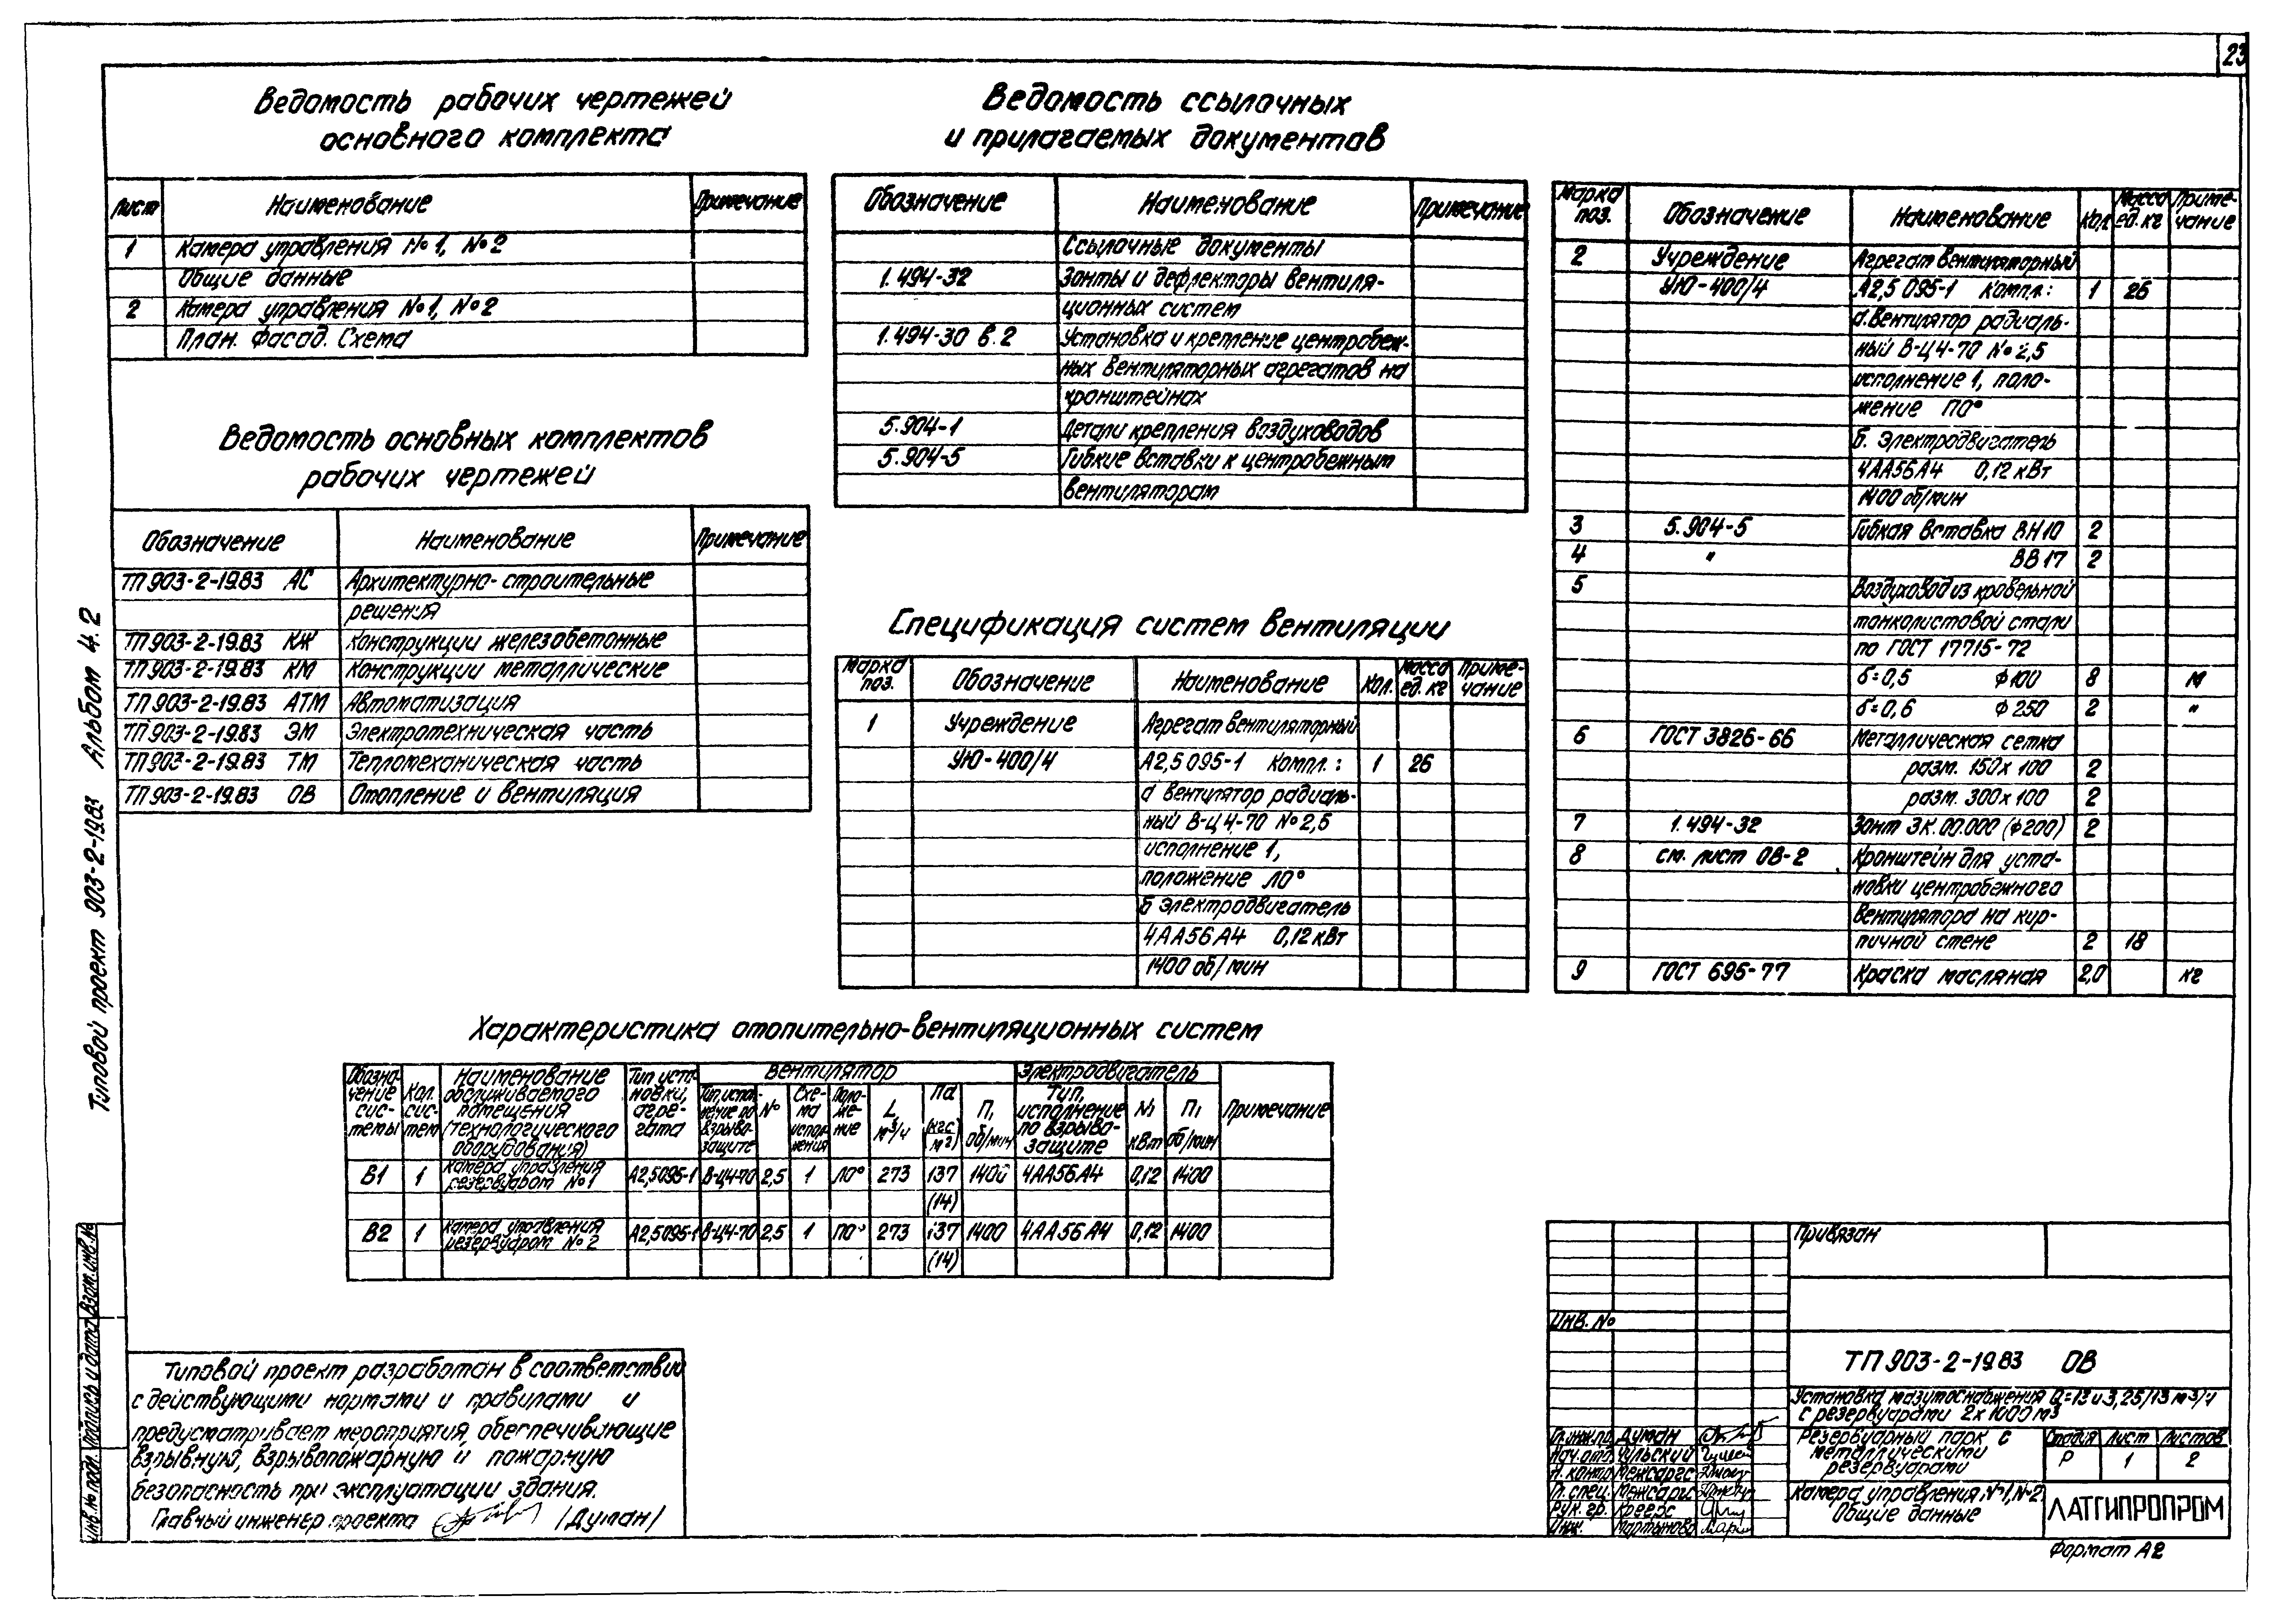 23
Ведомость рабочих чертежей
основного комплекта
Лист Наименование Примечание
1 Камера управления №1, №2
Общие данные
2 Камера управления №1, №2
План. Фасад. Схема
Ведомость основных комплектов
рабочих чертежей
Обозначение Наименование Примечание
ТП 903-2-19.83 АС Архитектурно-строительные
решения
ТП 903-2-19.83 КЖ Конструкции железобетонные
ТП 903-2-19.83 КМ Конструкции металлические
ТП 903-2-19.83 АТМ Автоматизация
ТП 903-2-19.83 ЭМ Электротехническая часть
ТП 903-2-19.83 ТМ Тепломеханическая часть
ТП 903-2-19.83 ОВ Отопление и вентиляция
Ведомость ссылочных
и прилагаемых документов
Обозначение Наименование Примечание
Ссылочные документы
1.494-32 Зонты и дефлекторы вентиля-
ционных систем
1.494-30 в.2 Установка и крепление центробеж-
ных вентиляторных агрегатов на
кронштейнах
5.904-1 Детали крепления воздуховодов
5.904-5 Гибкие вставки к центробежным
вентиляторам
Спецификация систем вентиляции
Марка поз. Обозначение Наименование Кол. Масса ед. кг Приме-чание
1 Учреждение Агрегат вентиляторный
УЮ-400/4 А2,5 095-1 Компл.: 1 26
а вентилятор радиаль-
ный В-Ц 4-70 №2,5
исполнение 1,
положение Л0°
б электродвигатель
4АА56А4 0,12 кВт
1400 об/мин
Марка поз. Обозначение Наименование Кол. Масса ед. кг Приме-чание
2 Учреждение Агрегат вентиляторный
УЮ-400/4 А2,5 095-1 Компл.: 1 26
а. Вентилятор радиаль-
ный В-Ц 4-70 №2,5
исполнение 1, поло-
жение П0°
б. Электродвигатель
4АА56А4 0,12 кВт
1400 об/мин
3 5.904-5 Гибкая вставка ВН10 2
4 " ВВ17 2
5 Воздуховод из кровельной
тонколистовой стали
по ГОСТ 17715-72
б=0,5 ф100 8 м
б=0,6 ф250 2 "
6 ГОСТ 3826-66 Металлическая сетка
разм. 150х100 2
разм. 300х100 2
7 1.494-32 Зонт ЗК.00.000 (ф200) 2
8 см. лист ОВ-2 Кронштейн для уста-
новки центробежного
вентилятора на кир-
пичной стене 2 18
9 ГОСТ 695-77 Краска масляная 2,0 кг
Характеристика отопительно-вентиляционных систем
Обозна-чение сис-темы Кол. сис-тем Наименование обслуживаемого помещения (технологического оборудования) Тип уста-новки, агре-гата Вентилятор Электродвигатель Примечание
Тип, испол-нение по взрыво-защите № Схе-ма испол-нения Поло-же-ние L, м³/ч Па (кгс/м²) П, об/мин Тип, исполнение по взрыво-защите N, кВт П, об/мин
В1 1 Камера управления резервуаром №1 А2,5095-1 В-Ц4-70 2,5 1 Л0° 273 137 1400 4АА56А4 0,12 1400
(14)
В2 1 Камера управления резервуаром №2 А2,5095-1 В-Ц4-70 2,5 1 П0° 273 137 1400 4АА56А4 0,12 1400
(14)
Типовой проект разработан в соответствии
с действующими нормами и правилами и
предусматривает мероприятия, обеспечивающие
взрывную, взрывопожарную и пожарную
безопасность при эксплуатации здания.
Главный инженер проекта /Думан/
Типовой проект 903-2-19.83 Альбом 4.2
Инв. № подл. Подпись и дата Взам. инв. №
Привязан
Инв. №
ТП 903-2-19.83 ОВ
Установка мазутоснабжения Q=13 и 3,25/13 м³/ч
с резервуарами 2х1000 м³
Гл. инж. пр. Думан
Нач. отд. Чульский
Н. контр. Межсаргс
Гл. спец. Межсаргс
Рук. гр. Креерс
Инж. Мартынова
Резервуарный парк с
металлическими
резервуарами
Стадия Лист Листов
Р 1 2
Камера управления №1, №2
Общие данные
ЛАТГИПРОПРОМ
Формат А2